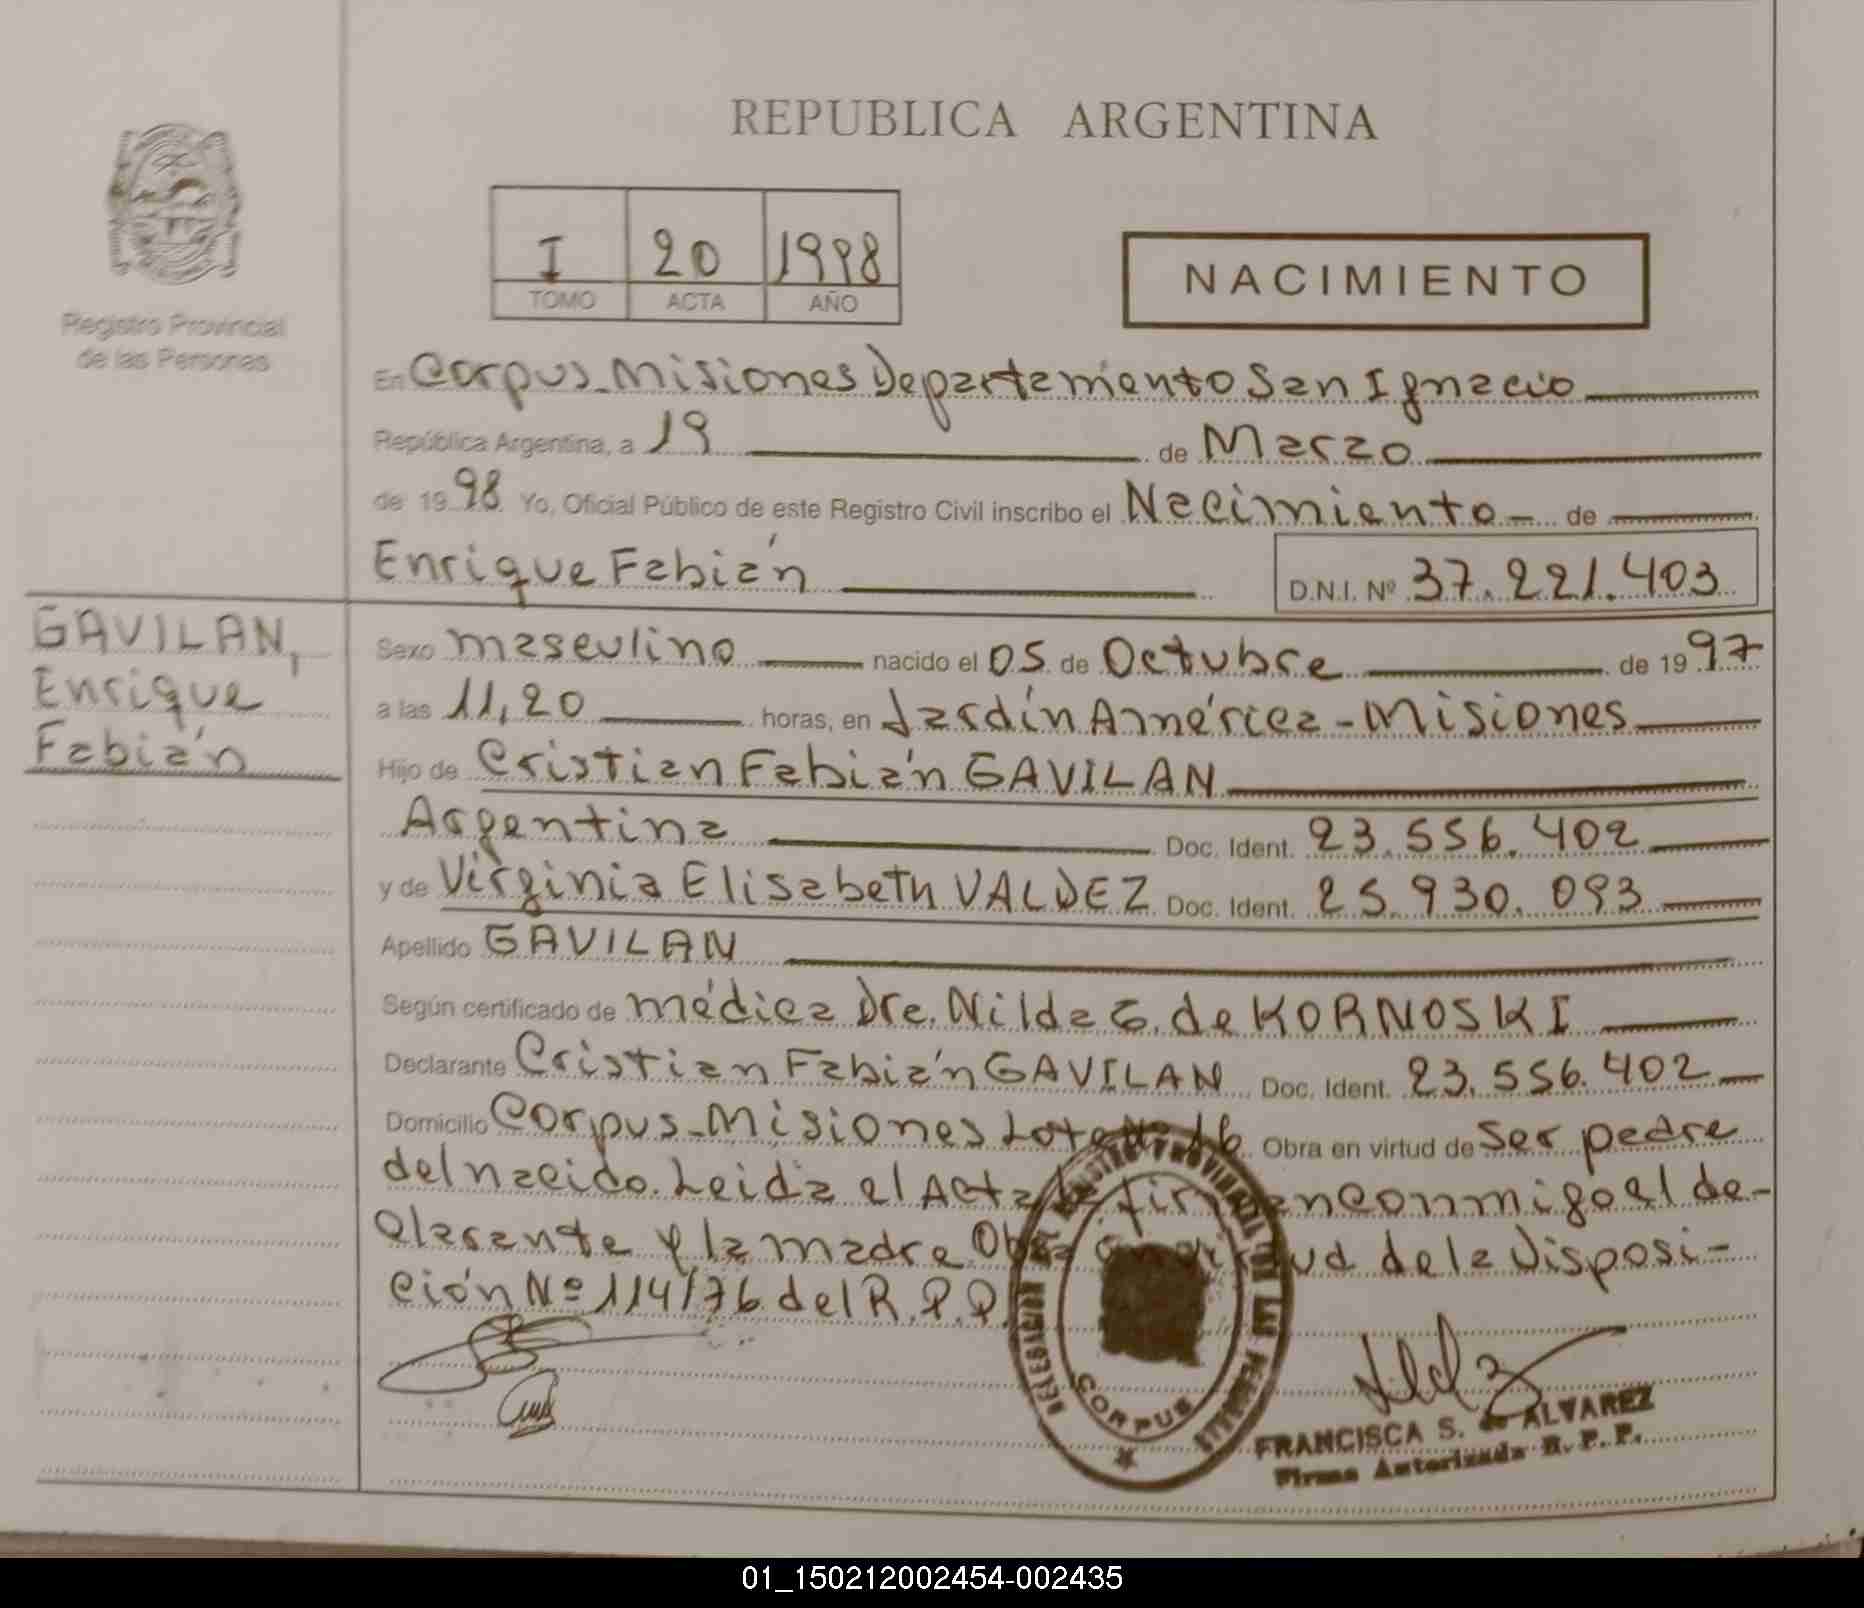 REPUBLICA ARGENTINA
Registro Provincial
de las Personas
I 20 1998
TOMO ACTA AÑO
NACIMIENTO
En Corpus-Misiones Departamento San Ignacio
República Argentina, a 19 de Marzo
de 19 98 Yo, Oficial Público de este Registro Civil inscribo el Nacimiento de
Enrique Fabián D.N.I. Nº 37.221.403
GAVILAN,
Enrique
Fabián
Sexo masculino nacido el 05 de Octubre de 19 97
a las 11,20 horas, en Jardín América-Misiones
Hijo de Cristian Fabián GAVILAN
Argentina Doc. Ident. 23.556.402
y de Virginia Elisabeth VALDEZ Doc. Ident. 25.930.093
Apellido GAVILAN
Según certificado de médica Dra. Nilda G. de KORNOSKI
Declarante Cristian Fabián GAVILAN Doc. Ident. 23.556.402
Domicilio Corpus-Misiones Lote 16 Obra en virtud de Ser padre
del nacido. Leida el Acta la firman conmigo el de-
clarante y la madre Obra en virtud de la Disposi-
ción Nº 114/76 del R.P.P.
CORPUS
FRANCISCA S. de ALVAREZ
Firma Autorizada R. P. P.
01_150212002454-002435